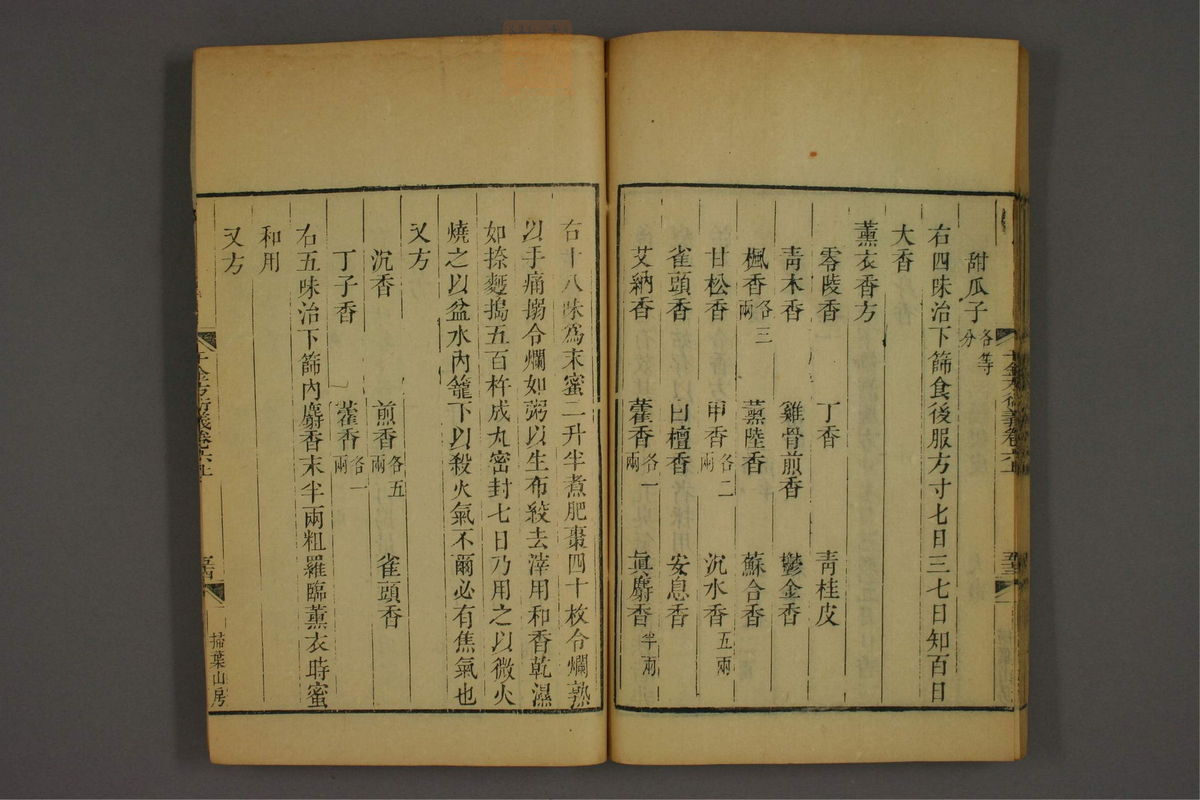 甜瓜子各等分
右四味治下篩食後服方寸七日三七日知百日
大香
薰衣香方
零陵香　丁香　青桂皮
青木香　雞骨煎香　鬱金香
楓香各三兩　薰陸香　蘇合香
甘松香　甲香各二兩　沉水香五兩
雀頭香　白檀香　安息香
艾納香　藿香各一兩　眞麝香半兩
右十八味爲末蜜二升半煮肥棗四十枚令爛熟
以手痛搦令爛如粥以生布絞去滓用和香乾濕
如捺麵搗五百杵成丸密封七日乃用之以微火
燒之以盆水內籠下以殺火氣不爾必有焦氣也
又方
沉香　煎香各五兩　雀頭香
丁子香　藿香各一兩
右五味治下篩內麝香末半兩粗羅臨薰衣時蜜
和用
又方
千金方衍義卷六上
掃葉山房